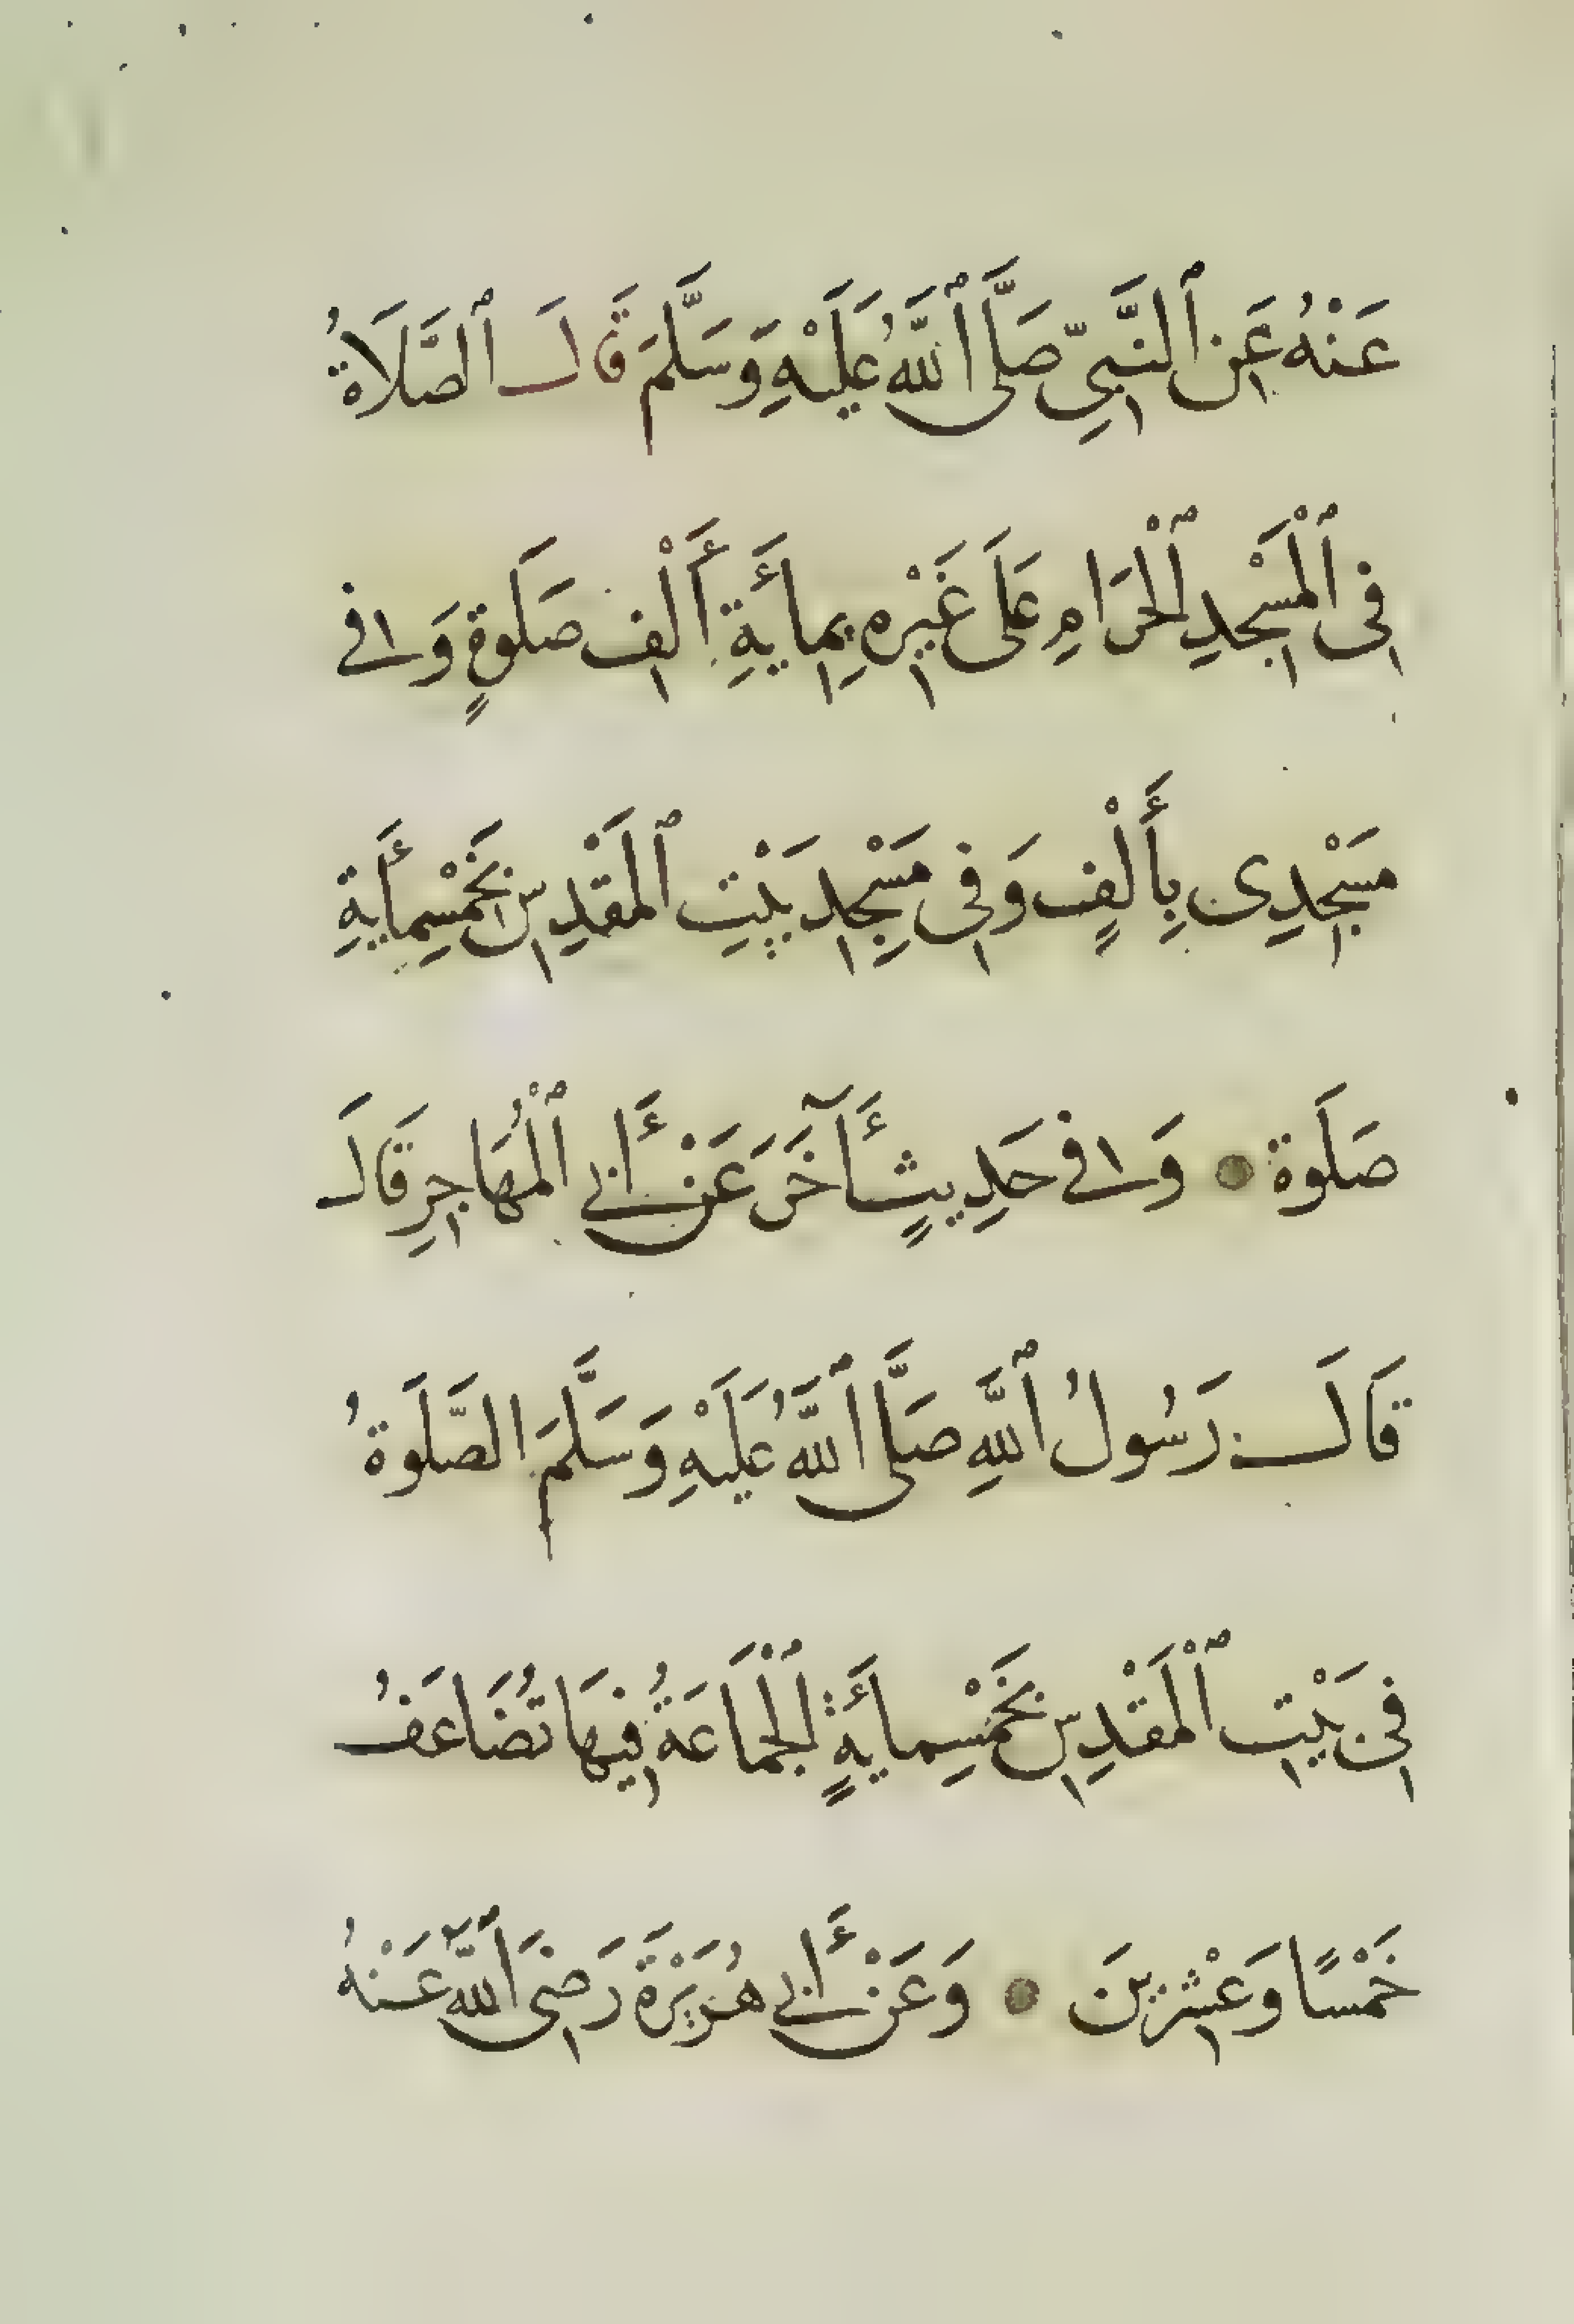 عَنْهُ عَنِ ٱلنَّبِيِّ صَلَّى ٱللَّهُ عَلَيْهِ وَسَلَّمَ قَالَ ٱلصَّلَاةُ
فِى ٱلْمَسْجِدِ ٱلْحَرَامِ عَلَى غَيْرِهِ بِمِائَةِ أَلْفِ صَلَوةٍ وَفِى
مَسْجِدِى بِأَلْفٍ وَفِى مَسْجِدِ بَيْتِ ٱلْمَقْدِسِ بِخَمْسِمِأَيَةِ
صَلَوة وَفِى حَدِيثٍ ءَآخَرَ عَنْ أَبِى ٱلْمُهَاجِرِ قَالَ
قَالَ رَسُولُ ٱللَّهِ صَلَّى ٱللَّهُ عَلَيْهِ وَسَلَّمَ الصَّلَوةُ
فِى بَيْتِ ٱلْمَقْدِسِ بِخَمْسِمِائَةٍ ٱلْجَمَاعَةُ فِيهَا تُضَاعَفُ
خَمْسًا وَعِشْرِينَ وَعَنْ أَبِى هُرَيْرَةَ رَضِىَ ٱللَّهُ عَنْهُ